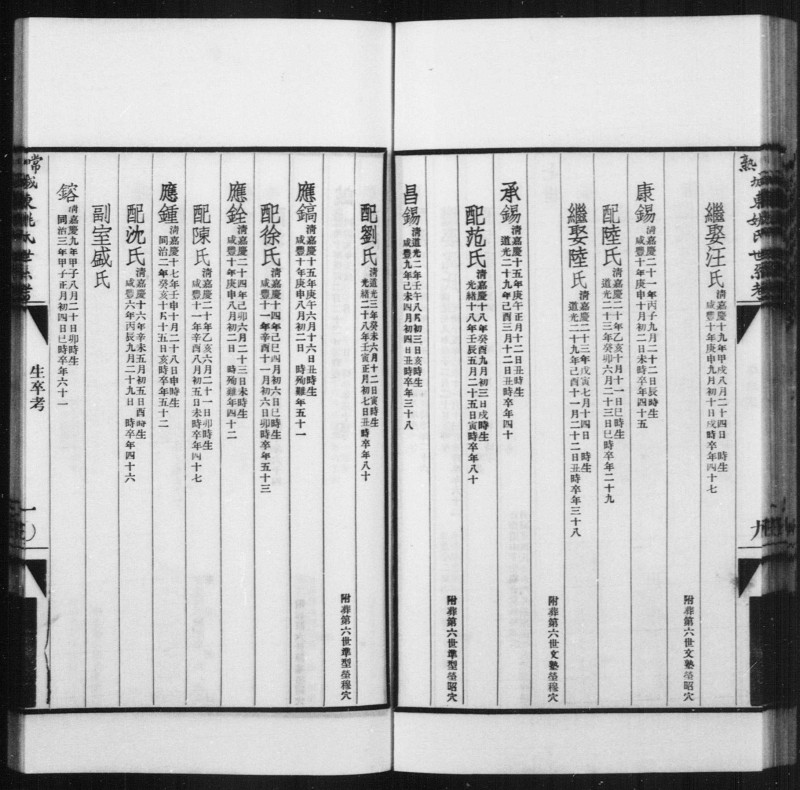 繼娶汪氏
清嘉慶十九年甲戌八月二十四日 時生
咸豐十年庚申九月初十日戌時卒年四十七
附葬第六世文塾塋昭穴
康錫
清嘉慶二十一年丙子九月二十二日辰時生
咸豐十年庚申十月初二日未時卒年四十五
配陸氏
清嘉慶二十年乙亥十月十一日巳時生
道光二十三年癸卯六月二十三日巳時卒年二十九
繼娶陸氏
清嘉慶二十三年戊寅七月十四日 時生
道光二十九年己酉十一月二十二日丑時卒年三十八
附葬第六世文塾塋穆穴
承錫
清嘉慶十五年庚午正月十二日丑時生
道光二十九年己酉三月十二日丑時卒年四十
配范氏
清嘉慶十八年癸酉九月初三日戌時生
光緒十八年壬辰五月二十五日寅時卒年八十
附葬第六世準型塋昭穴
昌錫
清道光二年壬午八月初三日亥時生
咸豐九年己未四月初四日丑時卒年三十八
配劉氏
清道光三年癸未六月十二日寅時生
光緒二十八年壬寅正月初七日丑時卒年八十
附葬第六世準型塋穆穴
應鎬
清嘉慶十五年庚午六月十六日丑時生
咸豐十年庚申八月初二日 時殉難年五十一
配徐氏
清嘉慶十四年己巳四月初六日巳時生
咸豐十一年辛酉十一月初六日卯時卒年五十三
應銓
清嘉慶二十四年己卯六月二十三日未時生
咸豐十年庚申八月初二日 時殉難年四十二
配陳氏
清嘉慶二十年乙亥六月二十一日卯時生
咸豐十一年辛酉八月初五日未時卒年四十七
應鍾
清嘉慶十七年壬申十月二十八日申時生
同治二年癸亥十月十五日亥時卒年五十二
配沈氏
清嘉慶十六年辛未五月初五日酉時生
咸豐六年丙辰九月二十九日 時卒年四十六
副室盛氏
鎔
清嘉慶九年甲子八月二十日卯時生
同治三年甲子正月初四日巳時卒年六十一
生卒考